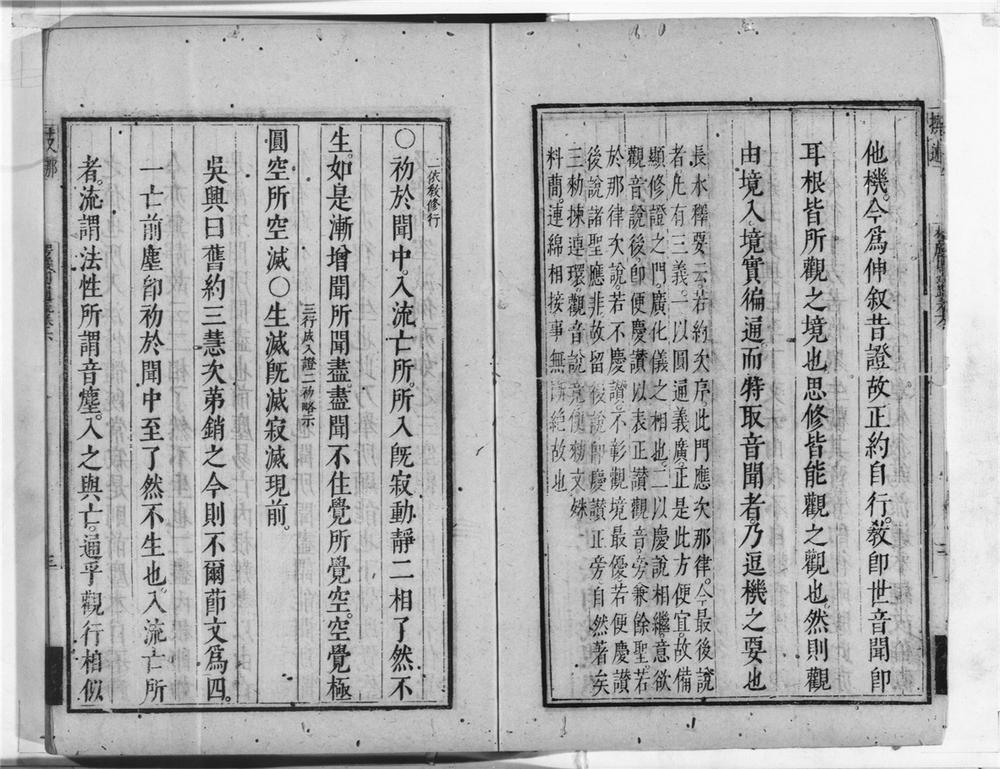 他機。今爲伸叙昔證故正約自行。敎卽世音聞卽
耳根皆所觀之境也思修皆能觀之觀也。然則觀
由境入。境實徧通。而特取音聞者。乃逗機之要也
長水釋要云。若約次序此門應次那律。今最後說
者。凡有三義。一以圓通義廣。正是此方便宜。故備
顯修證之門。廣化儀之相也。二以慶說相繼意欲
觀音說後。卽便慶讃以表正讃觀音。旁兼餘聖。若
於那律次說。若不慶讃。不彰觀境最優若便慶讃
後說諸聖應非故留後說卽慶讃正旁自然著矣
三勑揀連環。觀音說竟便勑文殊
料蕳。連綿相接事無
絶故也
二依敎修行
〇初於聞中。入流亡所。所入旣寂動靜二相了然不
生。如是漸增聞所聞盡。盡聞不住覺所覺空。空覺極
圓空所空滅〇生滅旣滅寂滅現前。
三行成入證二初略示
吳興曰舊約三慧次苐銷之今則不爾莭文爲四。
一亡前塵卽初於聞中至了然不生也。入流亡所
者。流謂法性所謂音塵。入之與亡。通乎觀行相似